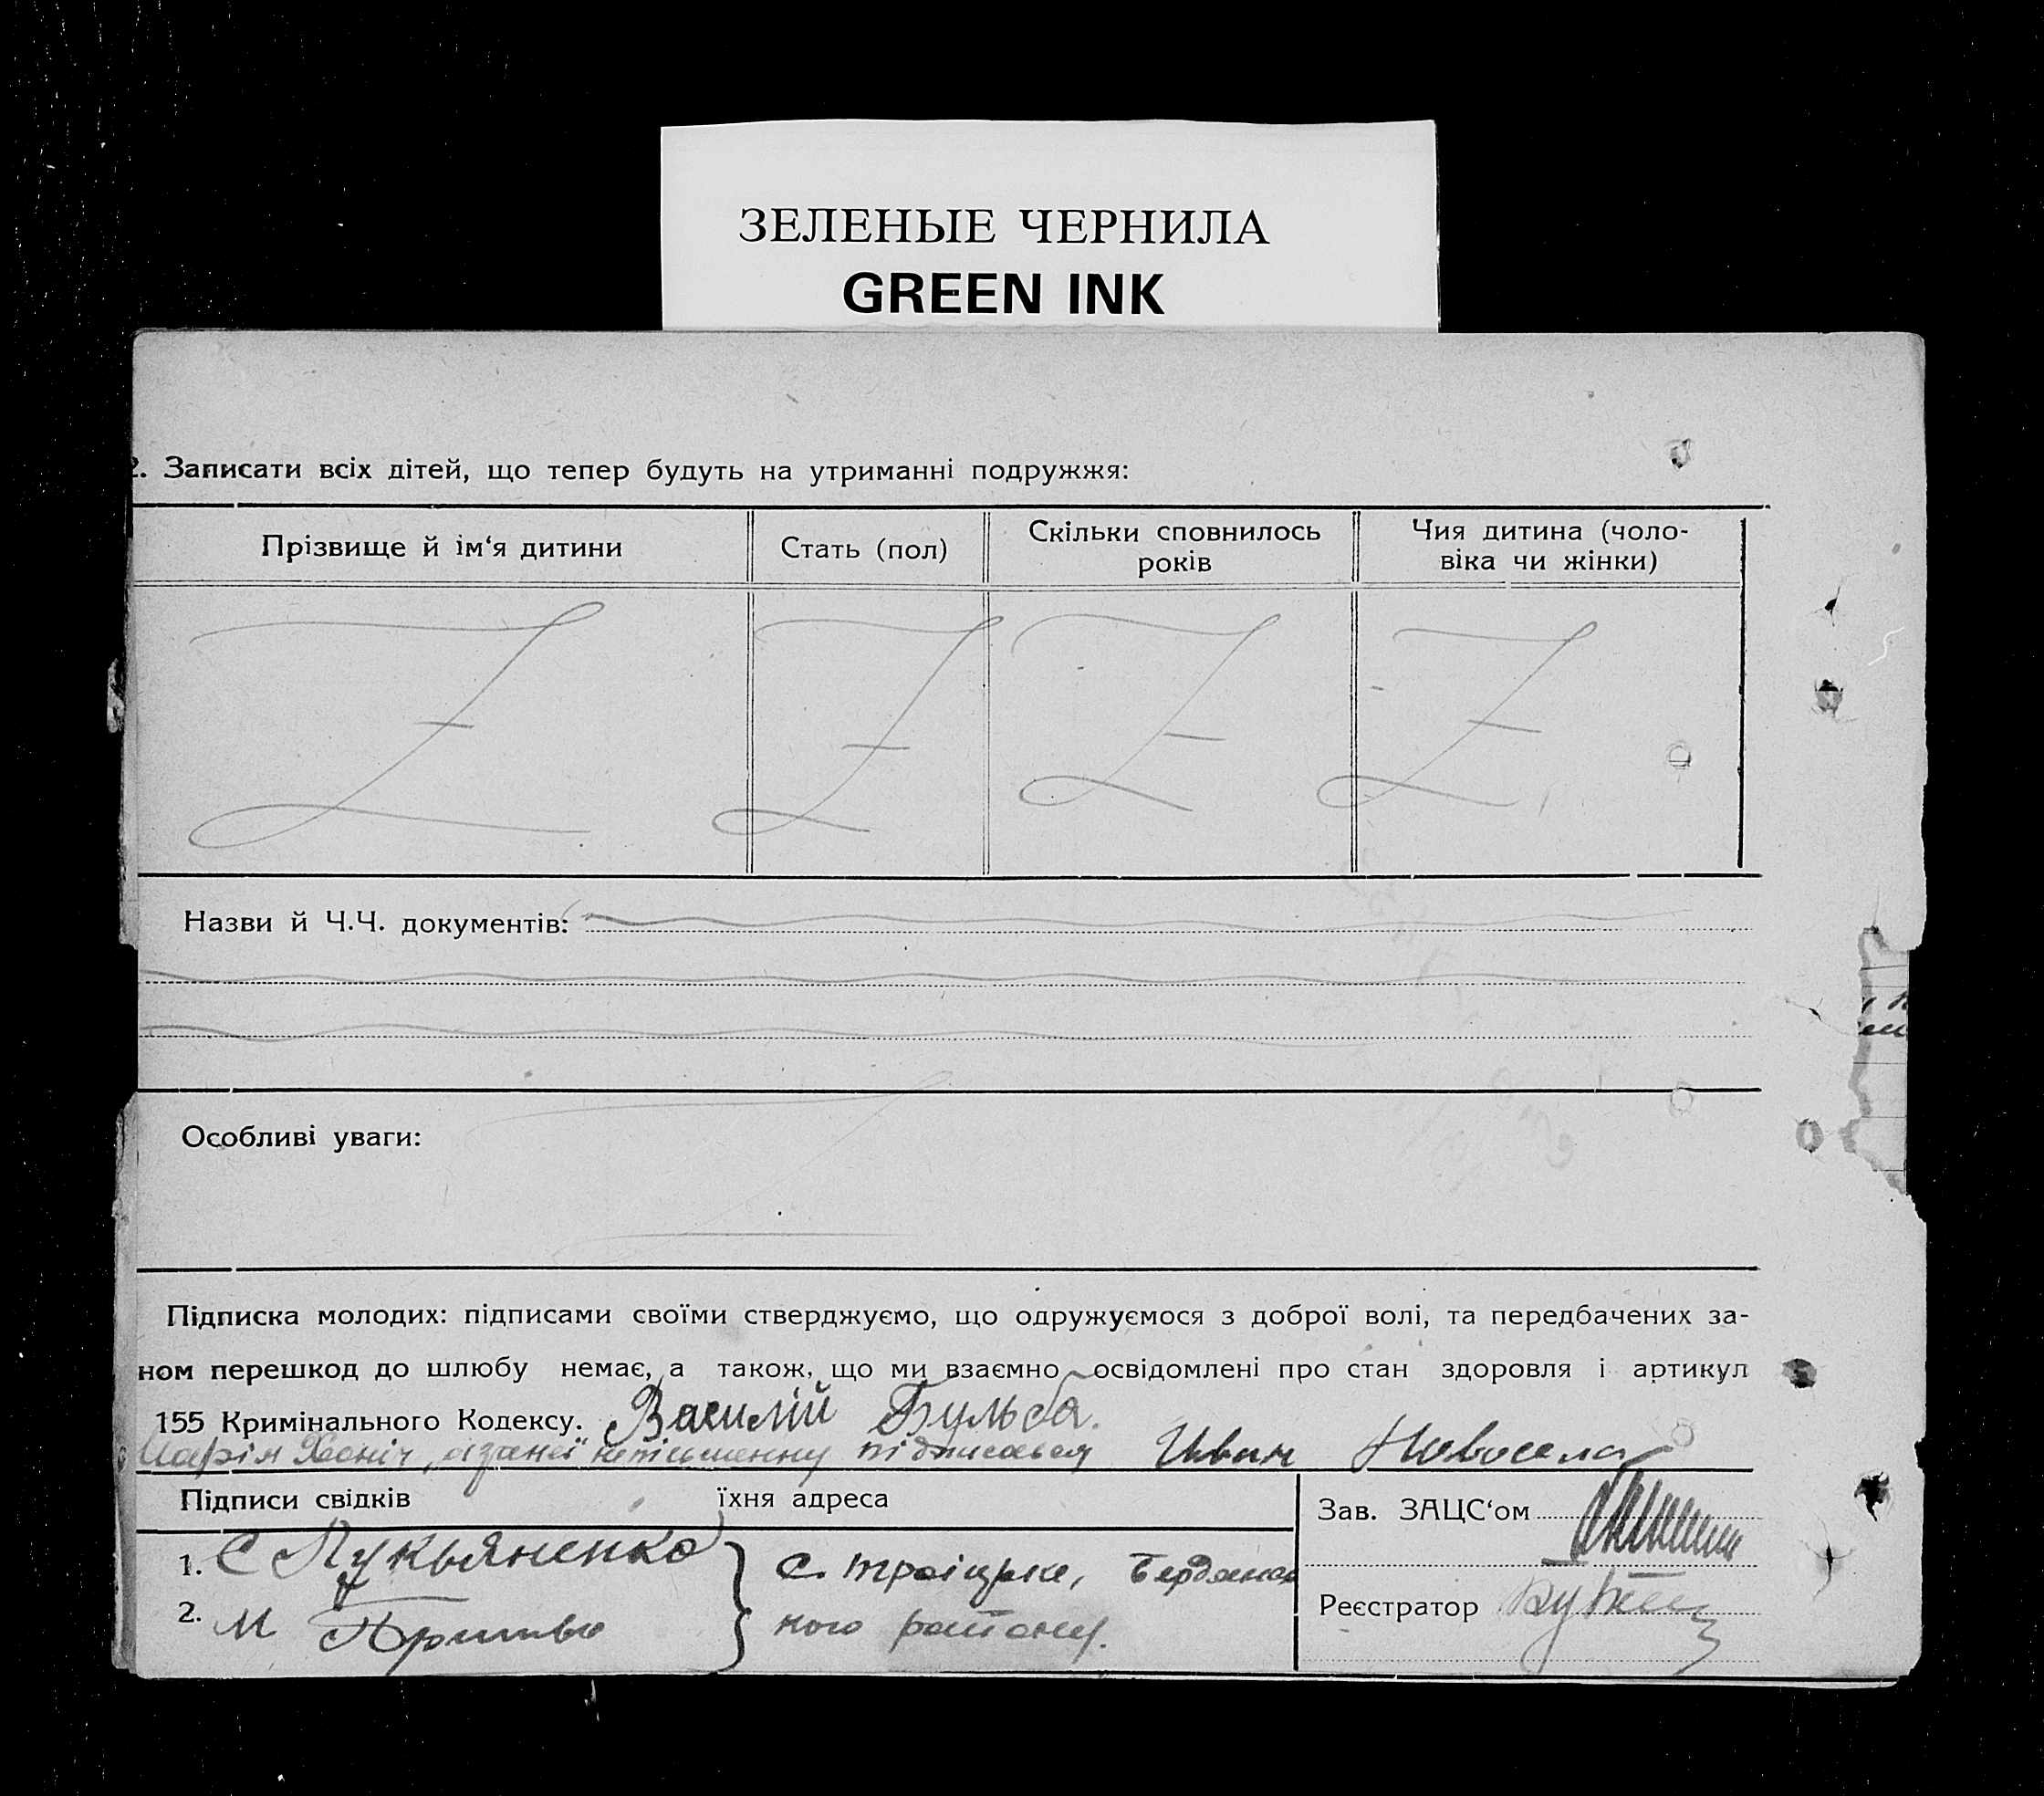 ЗЕЛЕНЫЕ ЧЕРНИЛА
GREEN INK
2. Записати всіх дітей, що тепер будуть на утриманні подружжя:
Прізвище й ім‘я дитини
Стать (пол)
Скільки сповнилось
років
Чия дитина (чоло-
віка чи жінки)
Назви й Ч.Ч. документів:
Особливі уваги:
Підписка молодих: підписами своїми стверджуємо, що одружуємося з доброї волі, та передбачених за-
ном перешкод до шлюбу немає, а також, що ми взаємно освідомлені про стан здоровля і артикул
155 Кримінального Кодексу. Василій Бульба.
Марія підписався Иван Новосела
Підписи свідків
їхня адреса
Зав. ЗАЦС‘ом
1. С Лукьяненко
с. Троіцьке, Бердянсь
2. М
кого району.
Реєстратор